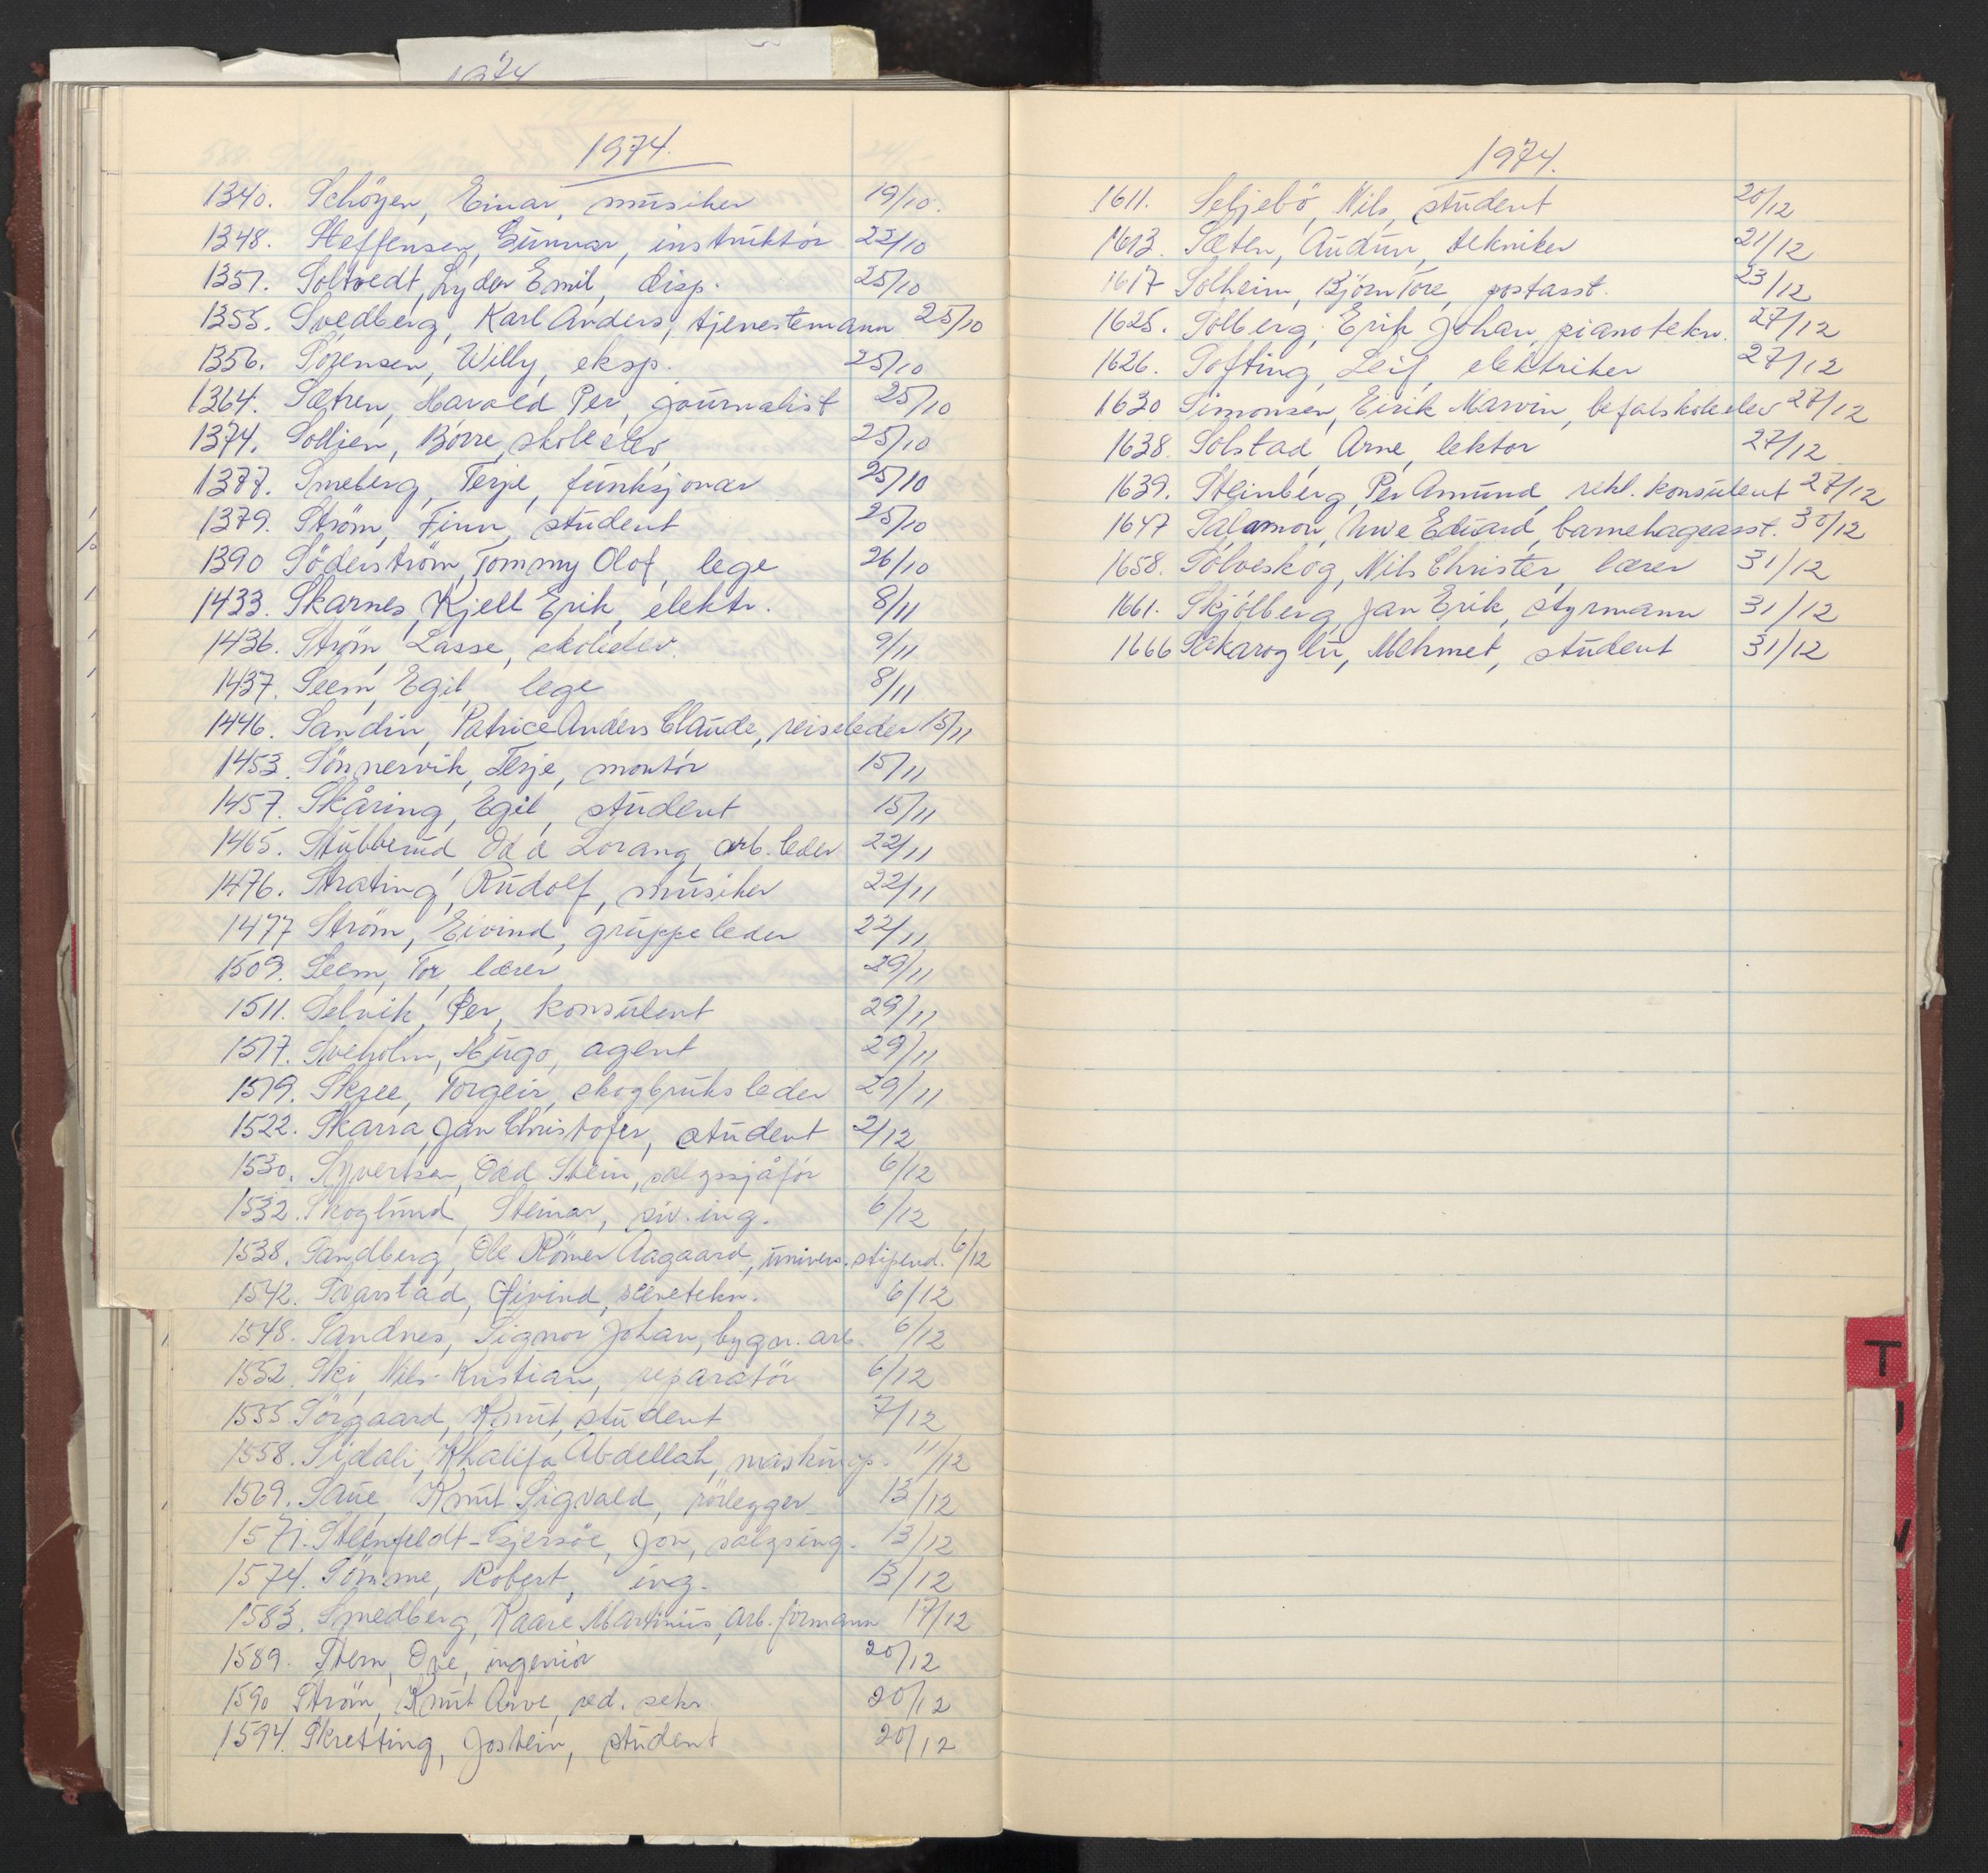 1974
1974.
1340. Schöyen, Einar, musiker 19/10.
1348. Steffensen, Gunnar, instruktör 22/10
1351. Soltvedt, Lyder Emil, disp. 25/10
1355. Svedberg, Karl Anders, tjenestemann 25/10
1356. Sörensen, Willy, eksp. 25/10
1364. Sætren, Harald Per, journalist 25/10
1374. Sollien, Börre, skoleelev 25/10
1377. Smeberg, Terje, funksjonær 25/10
1379. Ström, Finn, student 25/10
1390 Söderström, Tommy Olof, lege 26/10
1433. Skarnes, Kjell Erik, elektr. 8/11
1436. Ström, Lasse, skoleelev. 9/11
1437. Seem, Egil, lege 8/11
1446. Sandin, Patrice Anders Claude, reiseleder 15/11
1453. Sönnervik, Terje, montör 15/11
1457. Skåring, Egil, student 15/11
1465. Stubberud, Odd Lorang, arb.leder 22/11
1476. Strating, Rudolf, musiker 22/11
1477 Ström, Eivind, gruppeleder 22/11
1509. Seem, Tor, lærer 29/11
1511. Selvik, Per, konsulent 29/11
1517. Sveholm, Hugo, agent 29/11
1519. Skree, Torgeir, skogbruksleder 29/11
1522. Skarra, Jan Christofer, student 2/12
1530. Syvertsen, Odd Stein, salgssjåför 6/12
1532. Skoglund, Steinar, siv.ing. 6/12
1538. Sandberg, Ole Römer Aagaard, univers.stipend. 6/12
1542. Svarstad, Øivind, 6/12
1548. Sandnes, Signor Johan, bygn.arb. 6/12
1552. Ski, Nils-Kristian, reparatör 6/12
1555 Sörgaard, Knut, student 7/12
1558. Sidali, Khalifa Abdellah, maskinop. 11/12
1569. Saue, Knut Sigvald, rörlegger 13/12
1571. Steenfeldt-Gjersöe, Jon, salgsing. 13/12
1574. Sömme, Robert, ing. 13/12
1583. Smedberg, Kaare Martinius, arb.formann 17/12
1589. Stern, Ove, ingeniör 20/12
1590 Ström, Knut Arve, red.sekr. 20/12
1594. Skretting, Jostein, student 20/12
1974.
1611. Seljebö, Nils, student 20/12
1613. Sæten, Audun, tekniker 21/12
1617 Solheim, Björn Tore, postasst. 23/12
1625. Solberg, Erik Johan, pianotekn. 27/12
1626. Softing, Leif, elektriker 27/12
1630 Simonsen, Eirik Marvin, befalskoleelev 27/12
1638. Solstad, Arne, lektor 27/12
1639. Steinberg, Per Amund, rekl.konsulent 27/12
1647 Salamon, Uwe Eduard, barnehageasst. 30/12
1658. Sölveskog, Nils Christer, lærer 31/12
1661. Skjölberg, Jan Erik, styrmann 31/12
1666 Sakaroglu, Mehmet, student 31/12
T